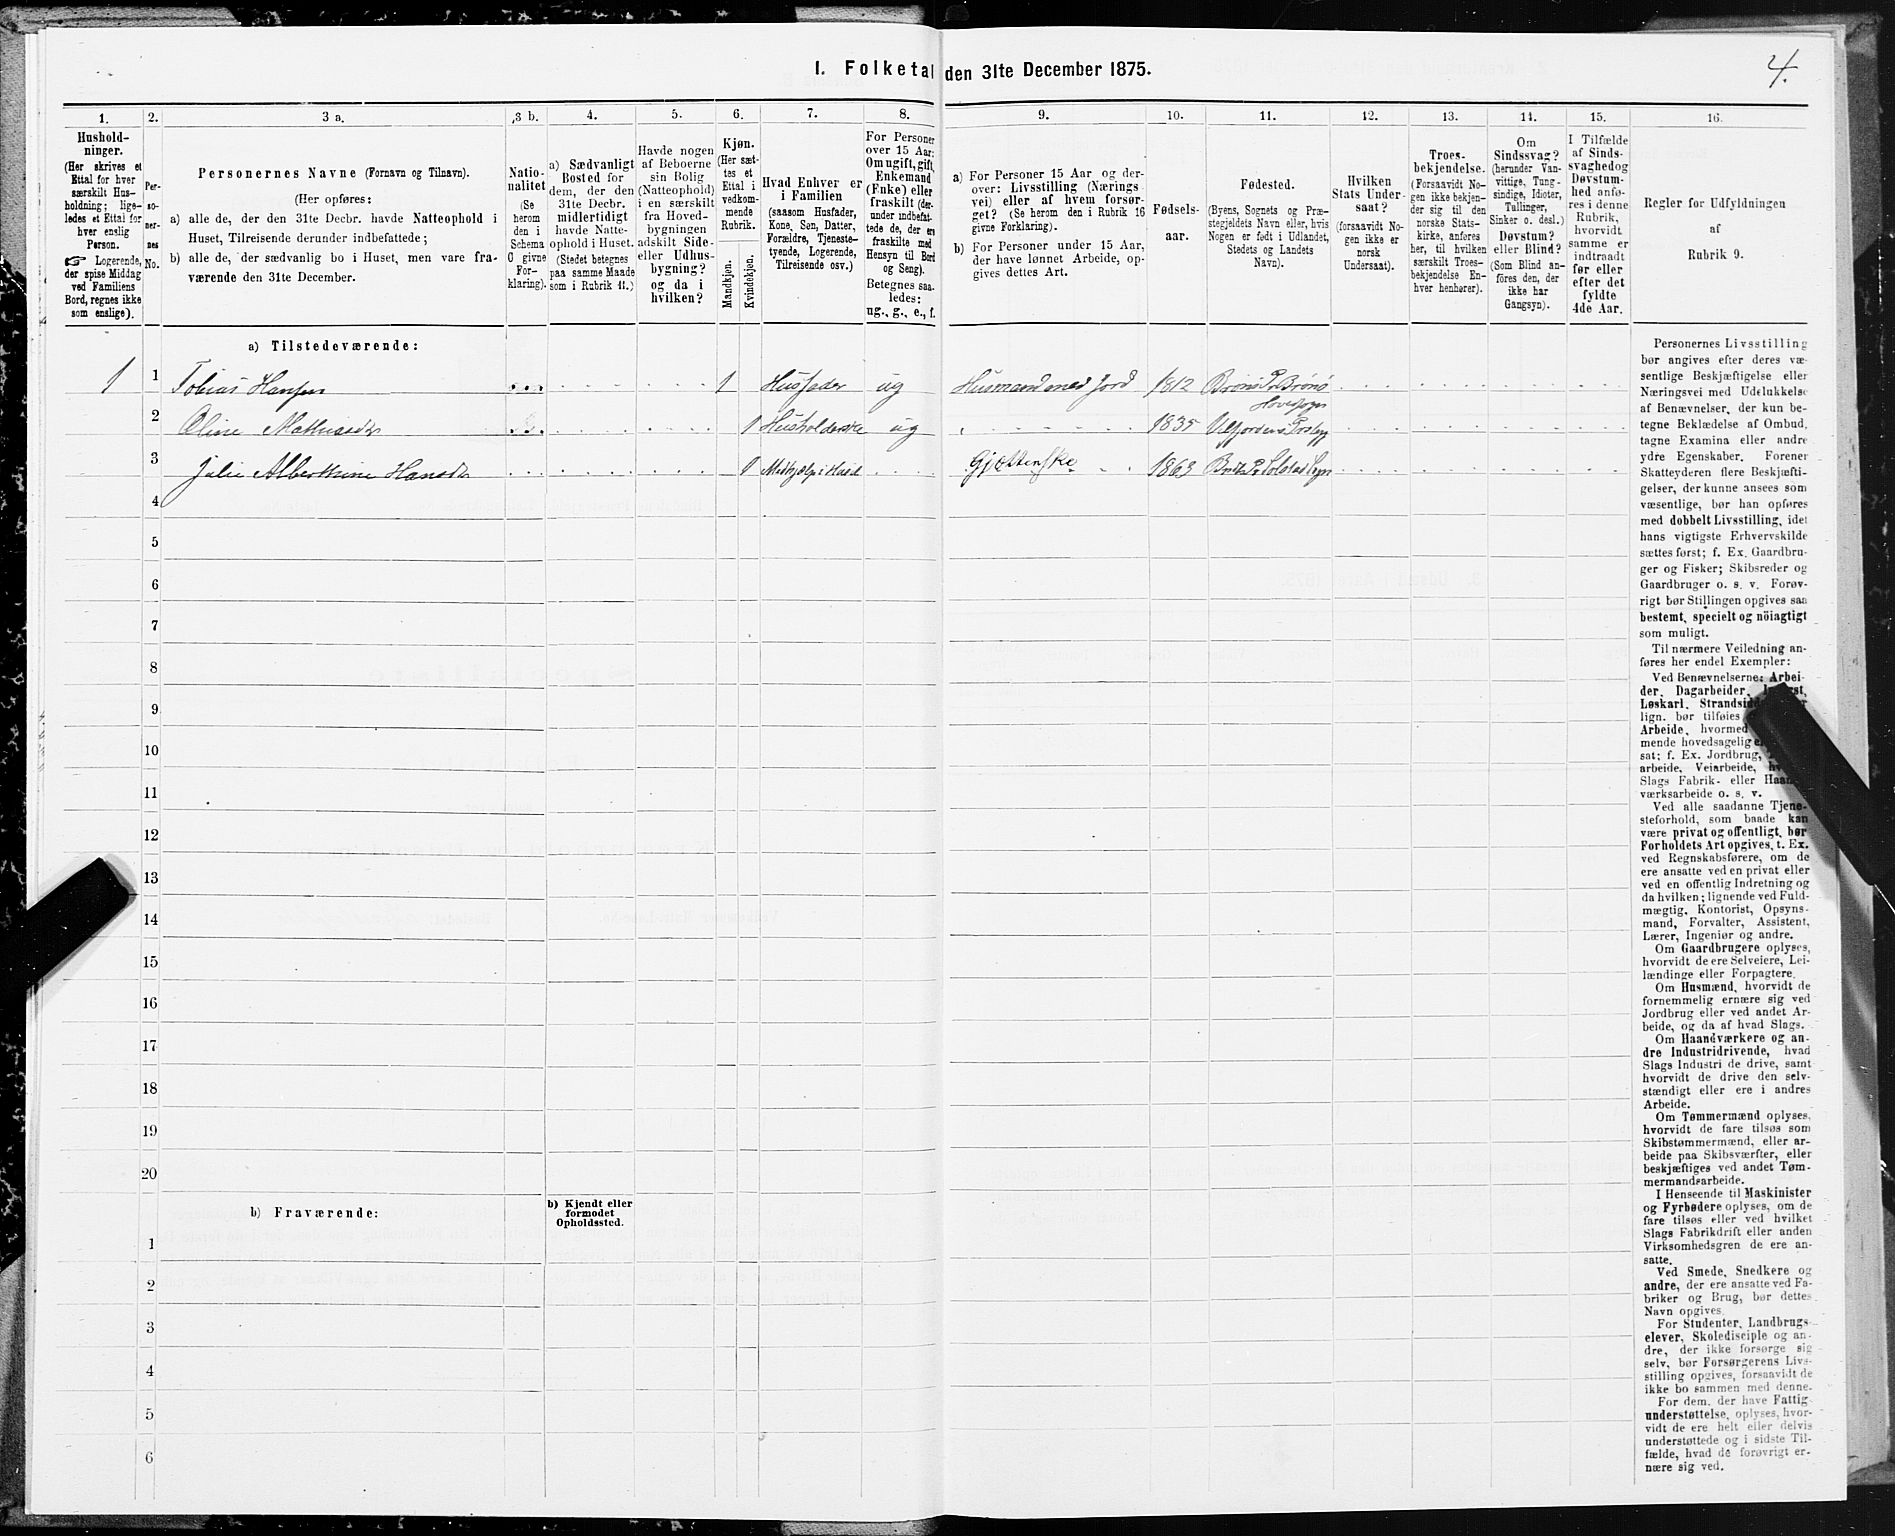 I. Folketal den 31te December 1875.
4.
1.
2.
3 a.
3 b.
4.
5.
6.
7.
8.
9.
10.
11.
12.
13.
14.
15.
16.
Hushold-
ninger.
(Her skrives et
Ettal for hver
særskilt Hus-
holdning; lige-
ledes et Ettal for
hver enslig
Person.
☞ Logerende,
der spise Middag
ved Familiens
Bord, regnes ikke
som enslige).
Per-
so-
ner-
nes
No.
Personernes Navne (Fornavn og Tilnavn).
(Her opføres:
a) alle de, der den 31te Decbr. havde Natteophold i
Huset, Tilreisende derunder indbefattede;
b) alle de, der sædvanlig bo i Huset, men vare fra-
værende den 31te December.
Natio-
nalitet
(Se
herom
den i
Schema
C givne
For-
klaring).
a) Sædvanligt
Bosted for
dem, der den
31te Decbr.
midlertidigt
havde Natte-
ophold i Huset.
(Stedet betegnes
paa samme Maade
som i Rubrik 11.)
Havde nogen
af Beboerne
sin Bolig
(Natteophold)
i en særskilt
fra Hoved-
bygningen
adskilt Side-
eller Udhus-
bygning?
og da i
hvilken?
Kjøn.
(Her sæt-
tes et
Ettal i
vedkom-
mende
Rubrik.
Mandkjøn.
Kvindekjøn.
Hvad Enhver er
i Familien
(saasom Husfader,
Kone, Søn, Datter,
Forældre, Tjeneste-
tyende, Logerende,
Tilreisende osv.)
For Personer
over 15 Aar:
Om ugift, gift,
Enkemand
(Enke) eller
fraskilt (der-
under indbefat-
tede de, der ere
fraskilte med
Hensyn til Bord
og Seng).
Betegnes saa-
ledes:
ug., g., e., f.
a) For Personer 15 Aar og der-
over: Livsstilling (Nærings-
vei) eller af hvem forsør-
get? (Se herom den i Rubrik 16
givne Forklaring).
b) For Personer under 15 Aar,
der have lønnet Arbeide, op-
gives dettes Art.
Fødsels-
aar.
Fødested.
(Byens, Sognets og Præ-
stegjeldets Navn eller, hvis
Nogen er født i Udlandet,
Stedets og Landets
Navn).
Hvilken
Stats Under-
saat?
(forsaavidt No-
gen ikke er
norsk
Undersaat).
Troes-
bekjendelse.
(Forsaavidt No-
gen ikke bekjen-
der sig til den
norske Stats-
kirke, anføres
her, til hvilken
særskilt Troes-
bekjendelse En-
hver henhører).
Om
Sindssvag?
(herunder Van-
vittige, Tung-
sindige, Idioter,
Tullinger,
Sinker o. desl.)
Døvstum?
eller Blind?
(Som Blind an-
føres den, der
ikke har
Gangsyn).
I Tilfælde
af Sinds-
svaghed og
Døvstum-
hed anfø-
res i denne
Rubrik,
hvorvidt
samme er
indtraadt
før eller
efter det
fyldte
4de Aar.
Regler for Udfyldningen
af
Rubrik 9.
a) Tilstedeværende:
1 1 Tobias Hansen 1 Husfader ug Husmand med Jord 1812 Brønø P. Brønø
Hovedsogn
2 Oline Mathiasdt 1 Husholderske ug 1835
3 Julie Alberthine Hansdt 1 Medhjælp i Huset Gjættenske 1863
4
5
6
7
8
9
10
11
12
13
14
15
16
17
18
19
20
b) Fraværende:
b) Kjendt eller
formodet
Opholdssted.
1
2
3
4
5
6
Personernes Livsstilling
bør angives efter deres væ-
sentlige Beskjæftigelse eller
Næringsvei med Udelukkelse
af Benævnelser, der kun be-
tegne Beklædelse af Ombud,
tagne Examina eller andre
ydre Egenskaber. Forener
Skatteyderen flere Beskjæfti-
gelser, der kunne ansees som
væsentlige, bør han opføres
med dobbelt Livsstilling, idet
hans vigtigste Erhvervskilde
sættes først; f. Ex. Gaardbru-
ger og Fisker; Skibsreder og
Gaardbruger o. s. v. Forøv-
rigt bør Stillingen opgives saa
bestemt, specielt og nöiagtigt
som muligt.
Til nærmere Veiledning an-
føres her endel Exempler:
Ved Benævnelserne: Arbei-
der, Dagarbeider,
Løskarl,
lign. bør tilføies
Arbeide, hvormed
mende hovedsagelig
sat; f. Ex. Jordbrug,
arbeide, Veiarbeide,
Slags Fabrik- eller
værksarbeide o. s. v.
Ved alle saadanne Tjene-
steforhold, som baade kan
være privat og offentligt, bør
Forholdets Art opgives, t. Ex.
ved Regnskabsførere, om de
ere ansatte ved en privat eller
ved en offentlig Indretning og
da hvilken; lignende ved Fuld-
mægtig, Kontorist, Opsyns-
mand, Forvalter, Assistent,
Lærer, Ingeniør og andre.
Om Gaardbrugere oplyses,
hvorvidt de ere Selveiere, Lei-
lændinge eller Forpagtere.
Om Husmænd, hvorvidt de
fornemmelig ernære sig ved
Jordbrug eller ved andet Ar-
beide, og da af hvad Slags.
Om Haandværkere og an-
dre Industridrivende, hvad
Slags Industri de drive, samt
hvorvidt de drive den selv-
stændigt eller ere i andres
Arbeide.
Om Tømmermænd oplyses,
hvorvidt de fare tilsøs som
Skibstømmermænd, eller ar-
beide paa Skibsværfter, eller
beskjæftiges ved andet Tøm-
mermandsarbeide.
I Henseende til Maskinister
og Fyrbødere oplyses, om de
fare tilsøs eller ved hvilket
Slags Fabrikdrift eller anden
Virksomhedsgren de ere an-
satte.
Ved Smede, Snedkere og
andre, der ere ansatte ved Fa-
briker og Brug, bør dettes
Navn opgives.
For Studenter, Landbrugs-
elever, Skoledisciple og an-
dre, der ikke forsørge sig
selv, bør Forsørgerens Livs-
stilling opgives, forsaavidt de
ikke bo sammen med denne.
For dem, der have Fattig-
understøttelse, oplyses, hvor-
vidt de ere helt eller delvis
understøttede og i sidste Til-
fælde, hvad de forøvrigt er-
nære sig ved.